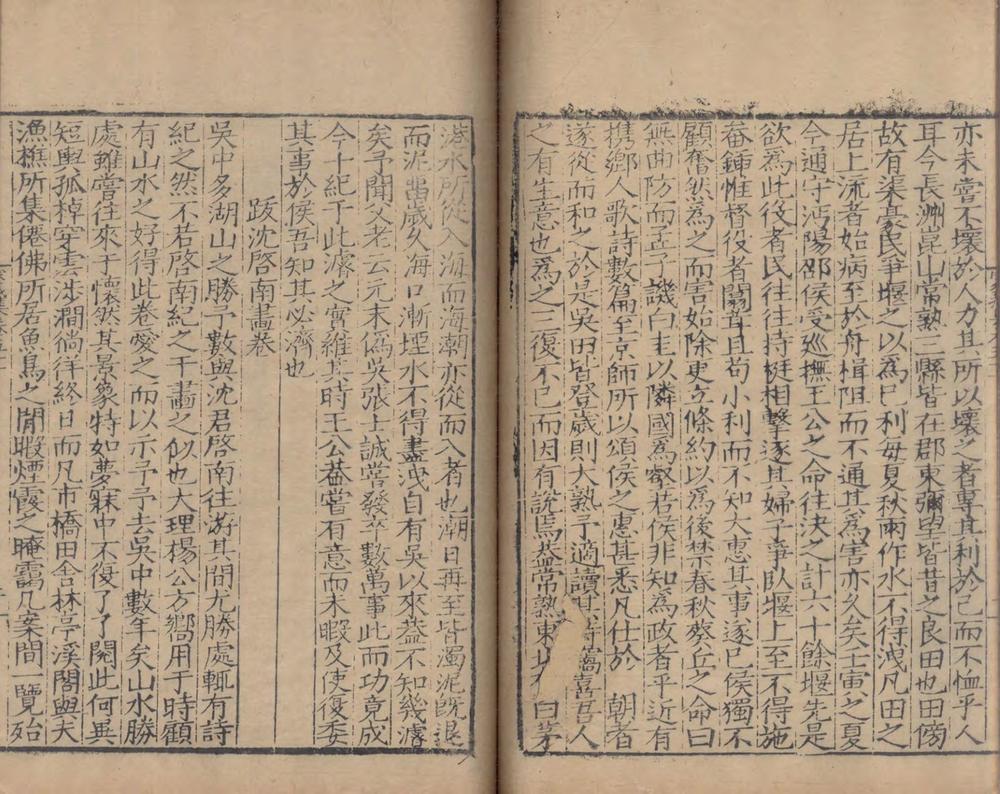 亦未嘗不壞於人力其所以壞之者專其利於己而不恤乎人
耳今長洲崑山常熟三縣皆在郡東彌望皆昔之良田也田傍
故有渠豪民爭堰之以為己利每夏秋雨作水不得洩凡田之
居上流者始病至於舟楫阻而不通其為害亦久矣壬寅之夏
今通守沔陽邵侯受巡撫王公之命往決之計六十餘堰先是
欲為此役者民往往持梃相擊逐其婦子爭臥堰上至不得施
畚鍤惟督役者闒茸且苟小利而不知大惠其事遂已侯獨不
顧奮然為之而害始除更立條約以為後禁春秋葵丘之命曰
無曲防而孟子譏白圭以隣國為壑若侯非知為政者乎近有
携鄉人歌詩數篇至京師所以頌侯之惠甚悉凡仕於 朝者
遂從而和之於是吳田皆登歲則大熟予適讀其詩喜吾人
之有生意也為之三復不已而因有說焉葢常熟東北有白茅
港水所從入海而海潮亦從而入者也潮日再至皆濁泥旣退
而泥畱歲久海口漸堙水不得盡洩自有吳以來葢不知幾濬
矣予聞父老云元末偽吳張士誠嘗發卒數萬事此而功竟成
今十紀于此濬之實維其時王公葢嘗有意而未暇及使復委
其事於侯吾知其必濟也
跋沈啓南畫卷
吳中多湖山之勝予數與沈君啓南往游其間尤勝處輒有詩
紀之然不若啓南紀之于畫之似也大理楊公方嚮用于時顧
有山水之好得此卷愛之而以示予予去吳中數年矣山水勝
處雖嘗往來于懷然其景象特如夢寐中不復了了閱此何異
短輿孤棹穿雲涉澗徜徉終日而凡市橋田舍林亭溪閣與夫
漁樵所集僊佛所居魚鳥之閒暇煙霞之晻靄几案間一覽殆